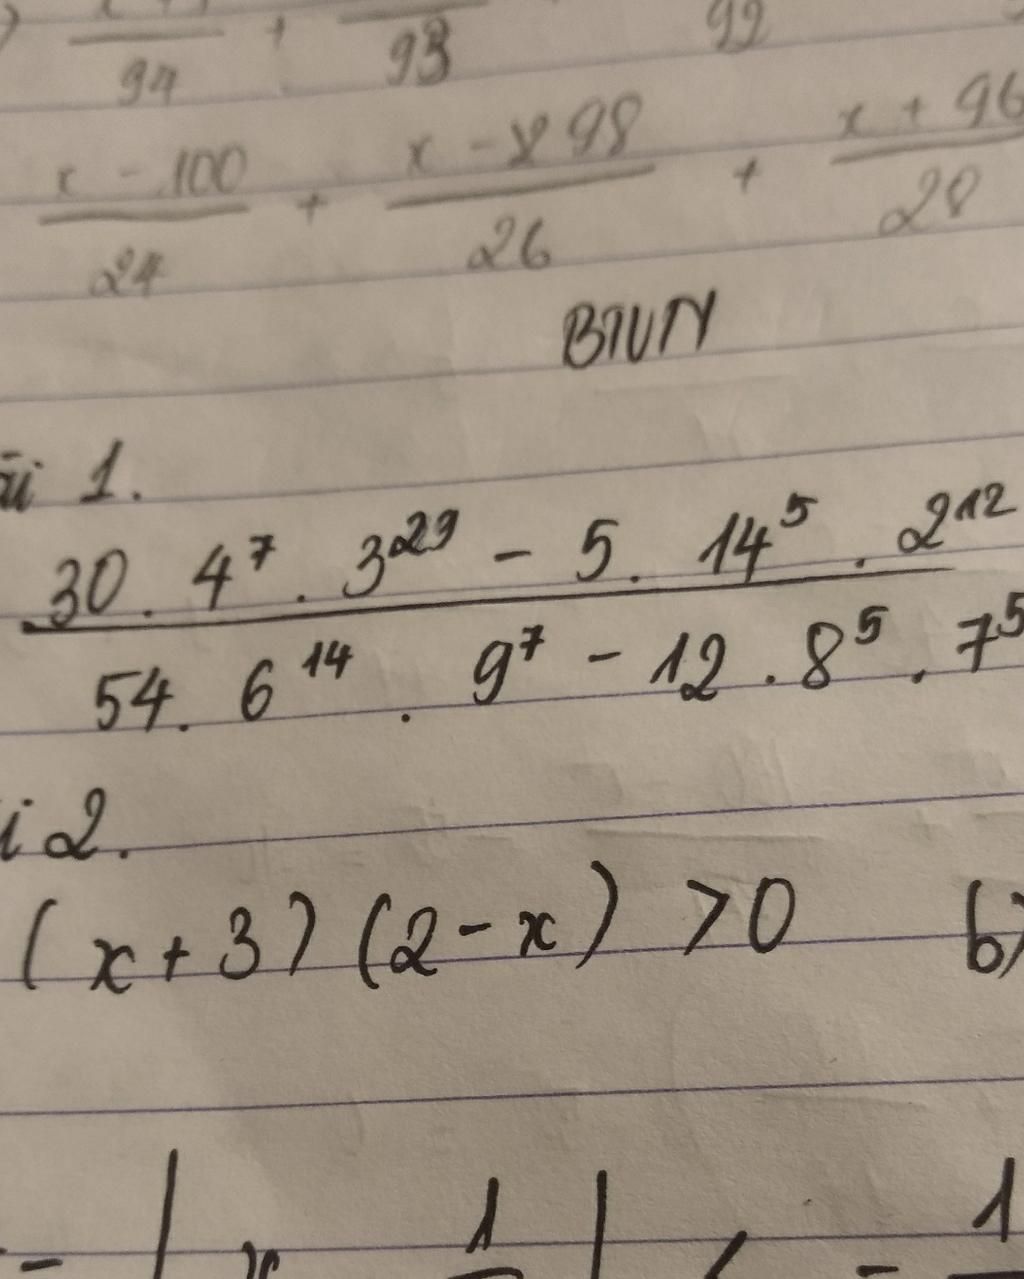 94 + 93 99
x - 100 / 24 + x - 98 / 26 + x + 96 / 28
BTVN
ài 1.
30 . 4⁷ . 3²⁹ - 5 . 14⁵ . 2¹²
54 . 6¹⁴ . 9⁷ - 12 . 8⁵ . 7⁵
i 2.
(x + 3) (2 - x) > 0 b)
- | x 1 | < - 1